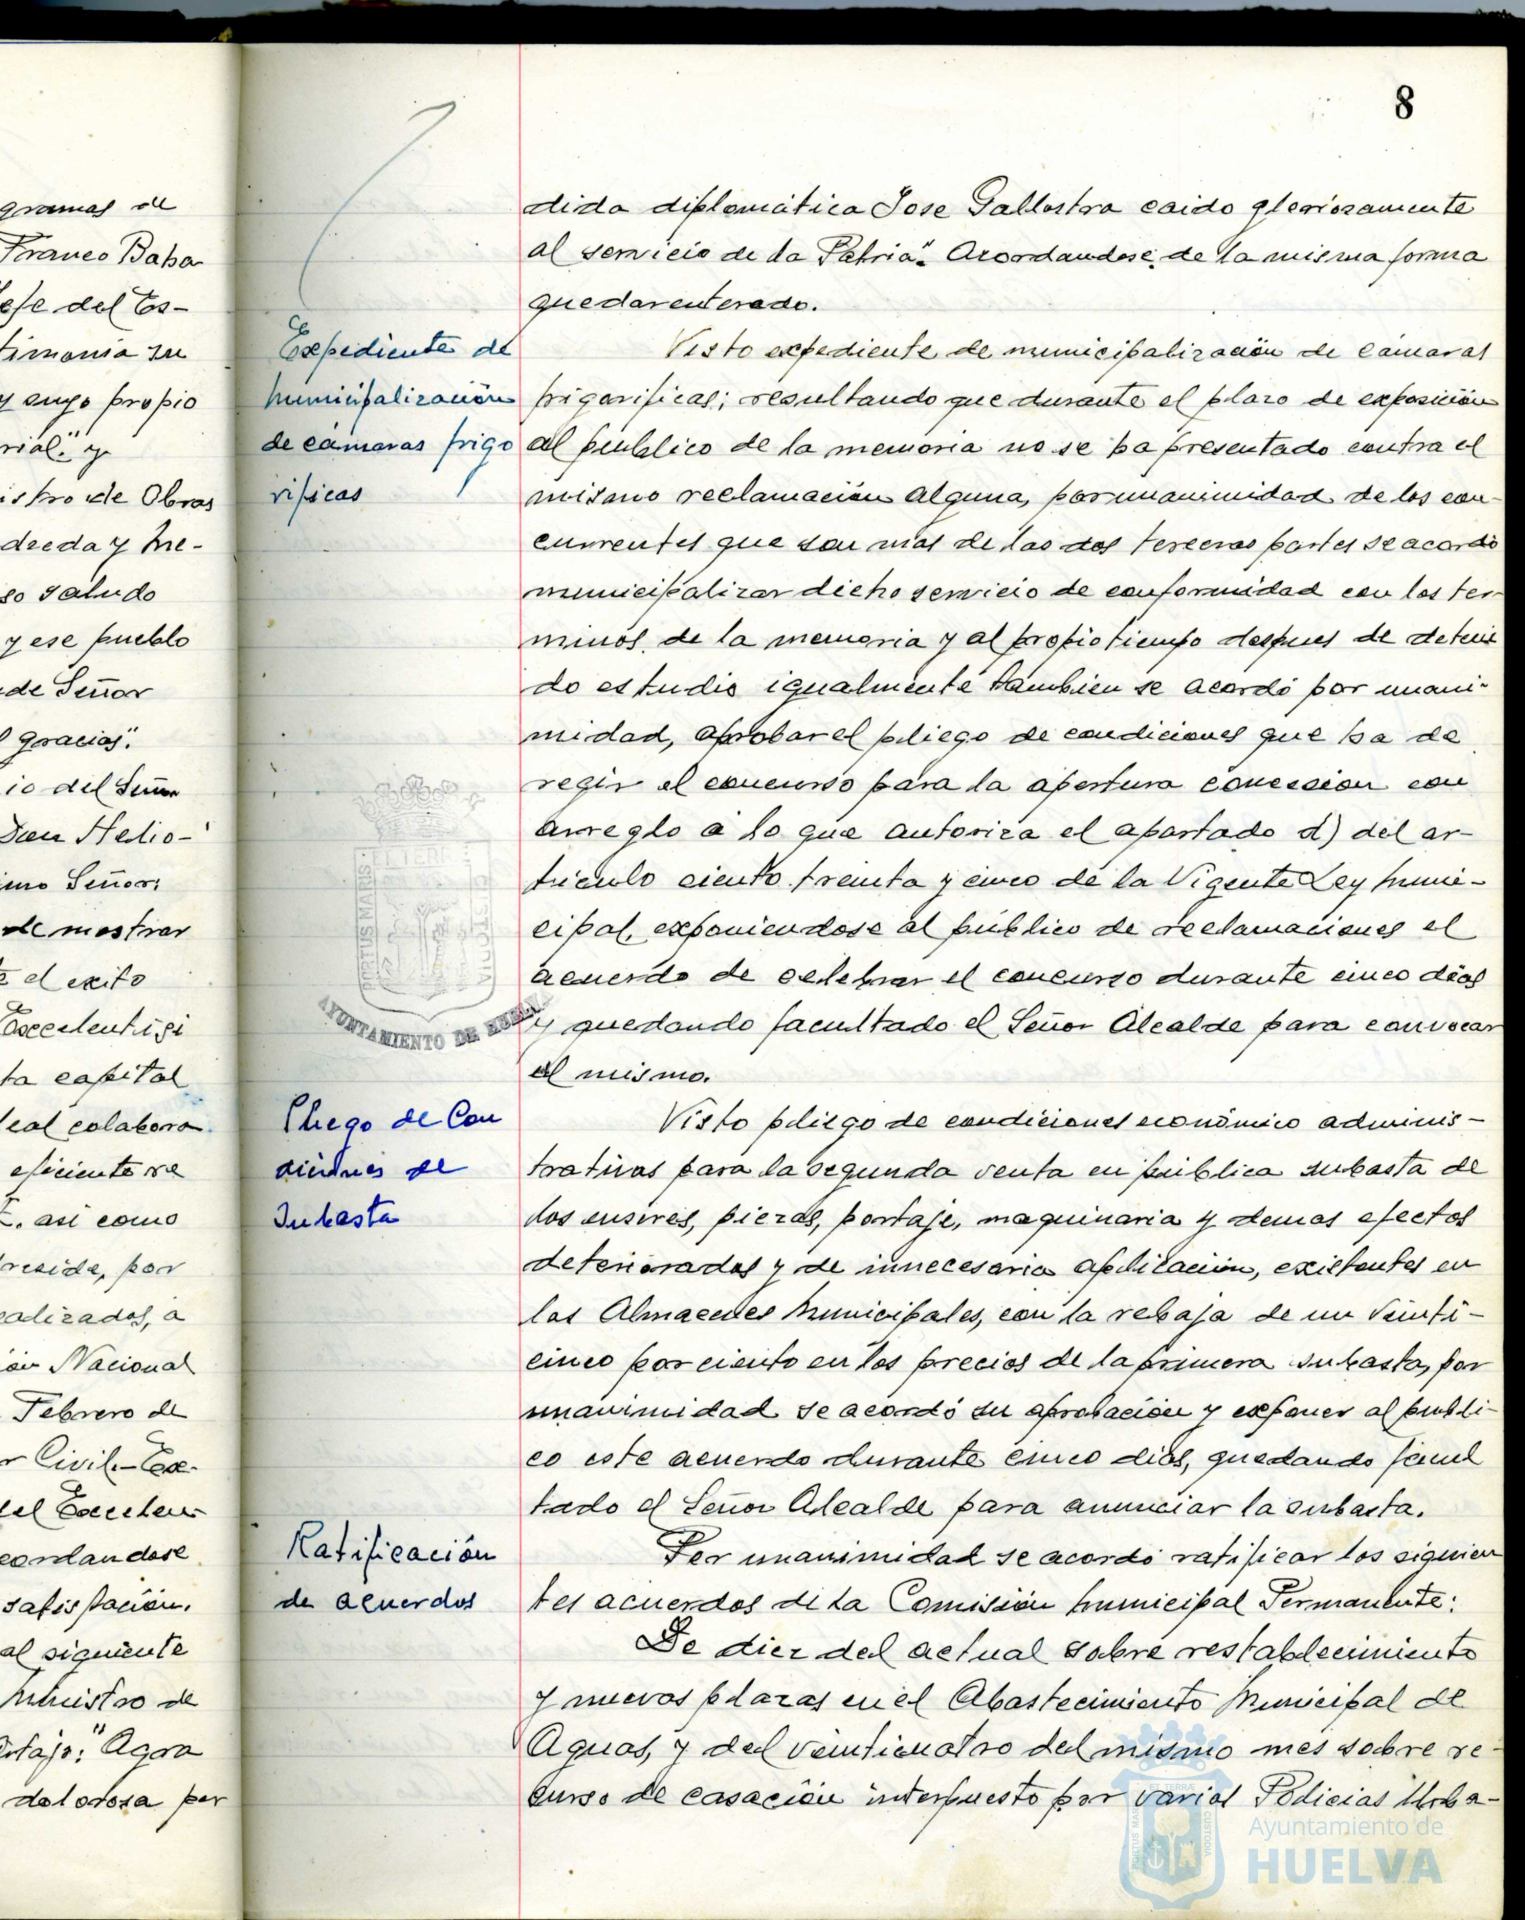 8
gramas de
Franco Baha
efe del Es-
timonia su
y suyo propio
rial." y
istro de Obras
dreda y Me-
so saludo
y ese pueblo
de Señor
gracias".
io del Señor
Don Helio-
imo Señor:
demostrar
el exito
Excelentisi
ta capital
leal colabora
eficiente re
E. asi como
reside, por
ealizados, a
ión Nacional
Febrero de
r Civil.-Exc-
del Excelen
cordandose
satisfación.
al siguiente
Ministro de
artajo:" Agora
dolorosa per
dida diplomática Jose Gallostra caido gleriosamente
al servicio de la Patria". Acordandose, de la misma forma
quedar enterado.
Expediente de
Municipalización
de cámaras frigo
rificas
Visto expediente de municipalización de cámaras
frigorificas; resultando que durante el plazo de exposición
al publico de la memoria no se ha presentado contra el
mismo reclamación alguna, por unanimidad de los con-
currentes que son mas de las dos terceras partes se acordó
municipalizar dicho servicio de conformidad con los ter-
minos de la memoria y al propio tiempo despues de deteni
do estudio igualmente tambien se acordó por unani-
midad, aprobar el pliego de condiciones que ha de
regir el concurso para la apertura concesion con
arreglo a lo que autoriza el apartado d) del ar-
ticulo ciento treinta y cinco de la Vigente Ley Muni-
cipal, exponiendose al público de reclamaciones el
acuerdo de celebrar el concurso durante cinco días
y quedando facultado el Señor Alcalde para convocar
el mismo.
PORTUS MARIS
ET TERRE
CUSTODIA
AYUNTAMIENTO DE HUELVA
Pliego de Con
diciones de
Subasta
Visto pliego de condiciones económico adminis-
trativas para la segunda venta en pública subasta de
los enseres, piezas, portaje, maquinaria y demas efectos
deteriorados y de innecesaria aplicación, existentes en
los Almacenes Municipales, con la rebaja de un veinti-
cinco por ciento en los precios de la primera subasta, por
unanimidad se acordó su aprobación y exponer al publi-
co este acuerdo durante cinco dias, quedando facul
tado el Señor Alcalde para anunciar la subasta.
Ratificación
de acuerdos
Por unanimidad se acordó ratificar los siguien
tes acuerdos de la Comisión Municipal Permanente:
De diez del actual sobre restablecimiento
y nuevas plazas en el Abastecimiento Municipal de
Aguas, y del veinticuatro del mismo mes sobre re-
curso de casación interpuesto por varios Policias Urba-
Ayuntamiento de
HUELVA